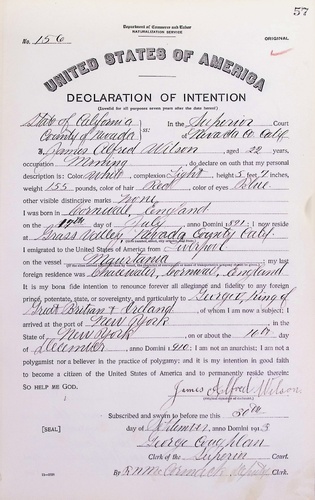 57
Department of Commerce and Labor
NATURALIZATION SERVICE
No. 156
ORIGINAL
UNITED STATES OF AMERICA
DECLARATION OF INTENTION
(Invalid for all purposes seven years after the date hereof)
State of California
County of Nevada
ss:
In the Superior Court
of Nevada Co. Calif
I, James Alfred Wilson, aged 22 years,
occupation Mining, do declare on oath that my personal
description is: Color White, complexion Light, height 5 feet 7 inches,
weight 155 pounds, color of hair Red, color of eyes Blue
other visible distinctive marks None
I was born in Cornwall, England
on the day of July, anno Domini 1891; I now reside
at Grass Valley, Nevada County Calif.
I emigrated to the United States of America from Liverpool
on the vessel Mauritania; my last
foreign residence was Cornwall, England
It is my bona fide intention to renounce forever all allegiance and fidelity to any foreign
prince, potentate, state, or sovereignty, and particularly to George V, King of
Great Britian & Ireland, of whom I am now a subject; I
arrived at the port of New York, in the
State of New York, on or about the 10th day
of December, anno Domini 1910; I am not an anarchist; I am not a
polygamist nor a believer in the practice of polygamy; and it is my intention in good faith
to become a citizen of the United States of America and to permanently reside therein:
SO HELP ME GOD.
James Alfred Wilson
Subscribed and sworn to before me this
[SEAL]
day of anno Domini 1913
George Coughlan
Clerk of the Superior Court.
By Deputy Clerk.